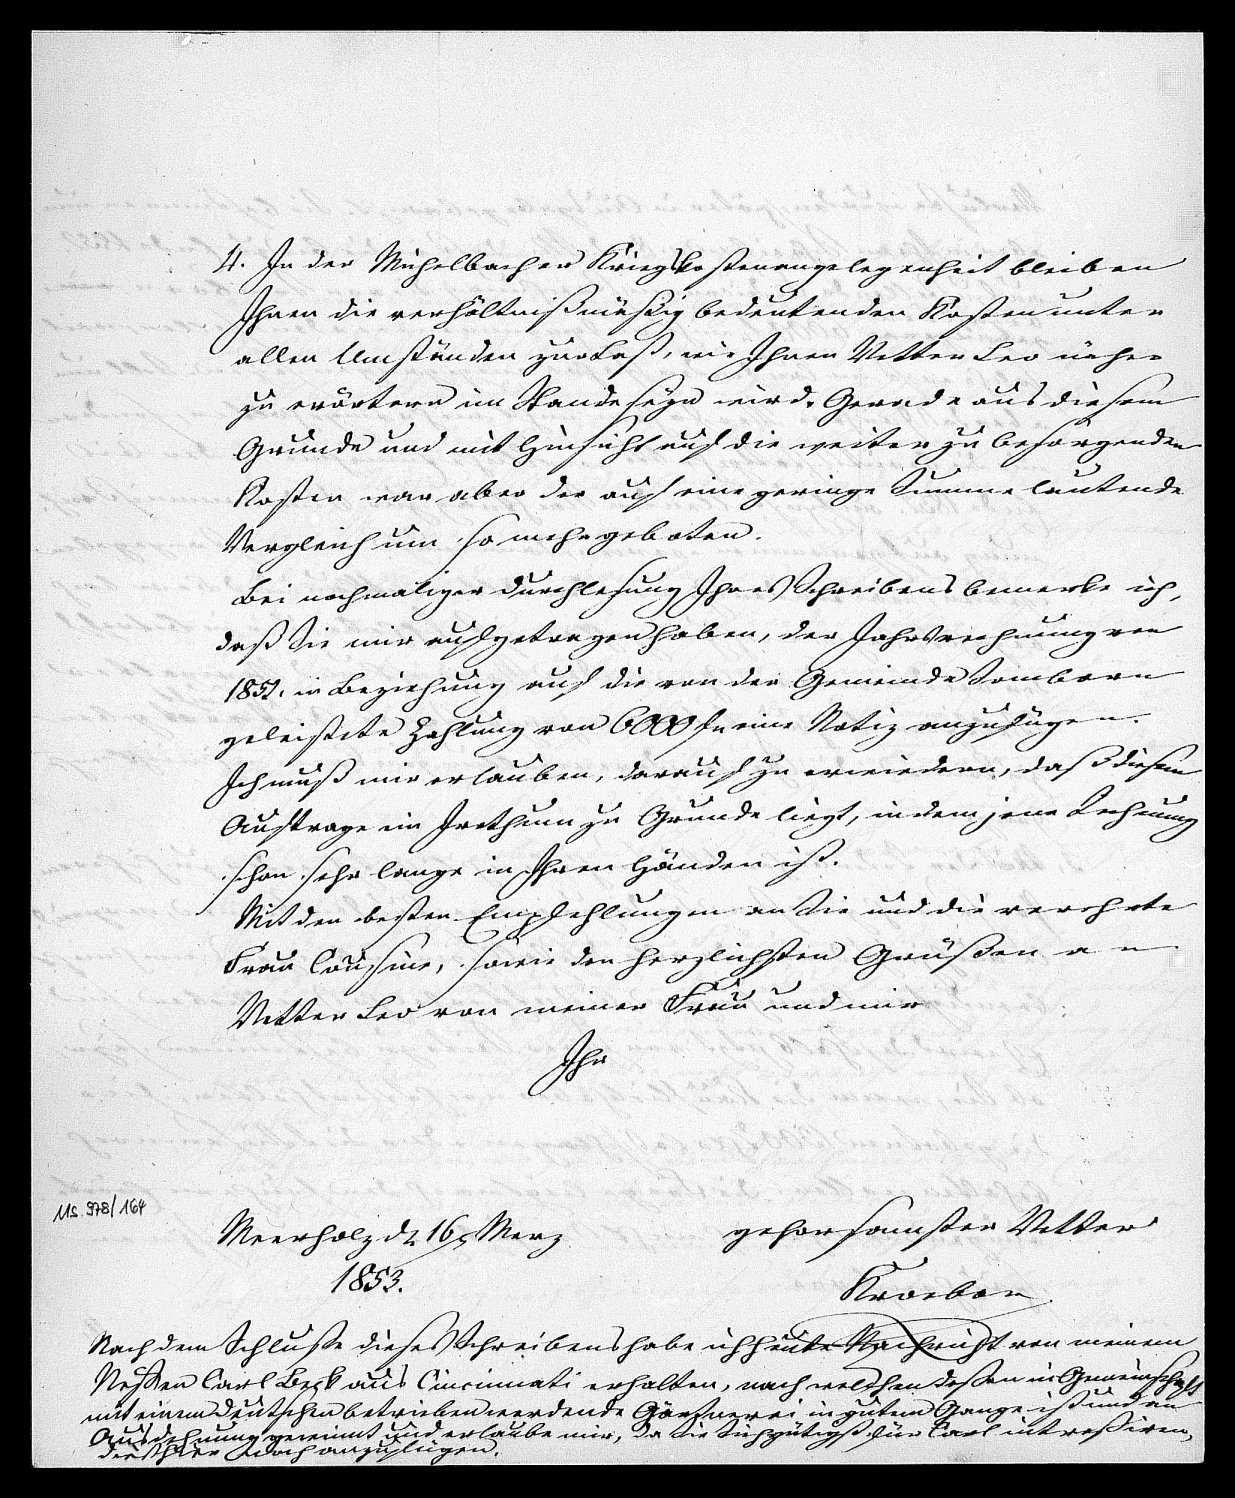 4. In der Michelbacher Kriegskostenangelegenheit bleiben
Ihnen die verhältnißmäßig bedeutenden Kosten unter
allen Umständen zur Last, wie Ihnen Vetter Leo näher
zu erörtern im Stande seyn wird. Gerade aus diesem
Grunde und mit Hinsicht auf die weiter zu besorgenden
Kosten war aber der auf eine geringe Summe lautende
Vergleich um so mehr geboten.
Bei nochmaliger Durchlesung Ihres Schreibens bemerke ich,
daß Sie mir aufgetragen haben, der Jahrsrechnung von
1851. in Beziehung auf die von der Gemeinde Somborn
geleistete Zahlung von 6000 fl. eine Notiz anzufügen.
Ich muß mir erlauben, darauf zu erwiedern, daß diesem
Auftrage ein Irrthum zu Grunde liegt, indem jene Rechnung
schon sehr lange in Ihren Händen ist.
Mit den besten Empfehlungen an Sie und die verehrte
Frau Cousine, sowie den herzlichsten Grüßen an
Vetter Leo von meiner Frau und mir
Ihr
Ms 978/164
Meerholz d. 16. Merz
gehorsamster Vetter
1853.
Kroeber
Nach dem Schluße dieses Schreibens habe ich heute Nachricht von meinem
Neffen Carl Beck aus Cincinnati erhalten, nach welchen deßen in Gemeinschaft
mit einem Deutschen betrieben werdende Gärtnerei in gutem Gange ist und an
Ausdehnung gewinnt und erlaube mir, da Sie sich gütigst für Carl intreßiren,
dies hier noch anzufügen.